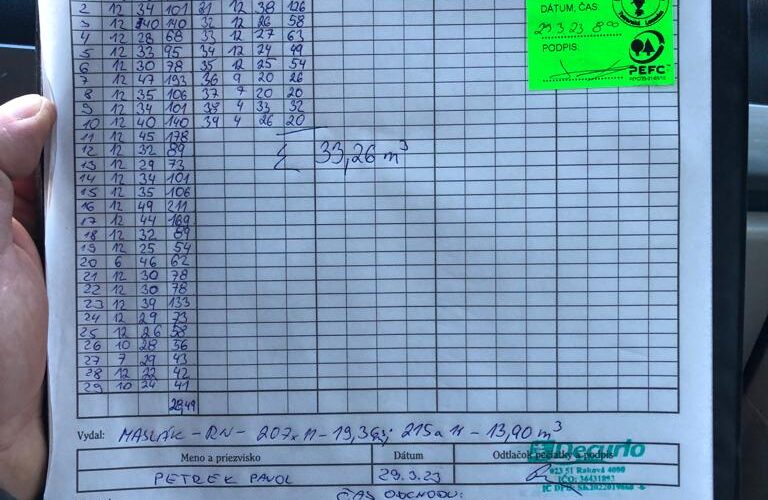 2 12 34 101 31 12 38 126
3 12 40 140 32 12 26 58
4 12 28 68 33 12 27 63
5 12 33 95 34 12 24 49
6 12 30 78 35 12 25 54
7 12 47 193 36 9 20 26
8 12 35 106 37 7 20 20
9 12 34 101 38 4 33 32
10 12 40 140 39 4 26 20
11 12 45 178
12 12 32 89
13 12 29 73
14 12 34 101
15 12 35 106
16 12 49 211
17 12 44 169
18 12 32 89
19 12 25 54
20 6 46 62
21 12 30 78
22 12 30 78
23 12 39 133
24 12 29 73
25 12 26 58
26 10 28 56
27 7 29 43
28 12 22 42
29 10 24 41
28,49
Σ 33,26 m³
DÁTUM, ČAS
29.3.23 8⁰⁰
PODPIS:
PEFC
Vydal: MASLIÁK - RN - 207 11 - 19,36; 215a 11 - 13,90 m³
Meno a priezvisko Dátum Odtlačok pečiatky a podpis
PETREK PAVOL 29.3.23
Decurio
023 51 Raková 4000
IČO: 36431893
IČ DPH: SK2022019868
ČAS ODCHODU: